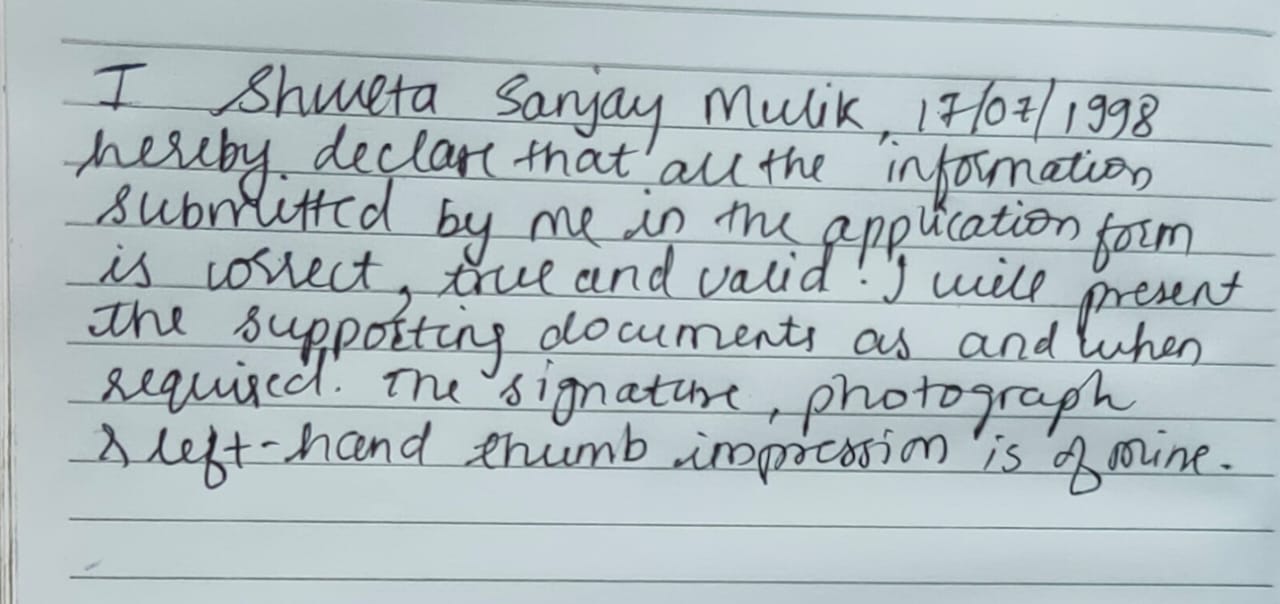 I Shweta Sanjay Mulik, 17/07/1998
hereby declare that all the information
submitted by me in the application form
is correct, true and valid. I will present
the supporting documents as and when
required. The signature, photograph
& left-hand thumb impression is of mine.